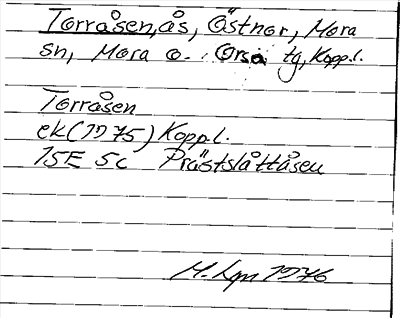 Torråsen, ås, Östnor, Mora
sn, Mora o. Orsa tg, Kopp.l.
Torråsen
ek (1975) Kopp.l.
15E 5c Prästslåttåsen
M. Lgn 1976